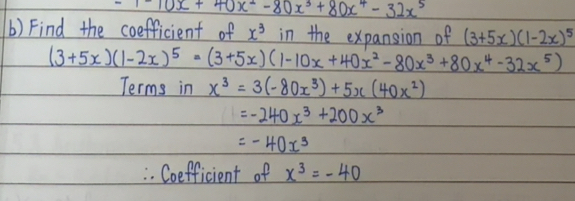 = 1 - 10x + 40x² - 80x³ + 80x⁴ - 32x⁵
b) Find the coefficient of x³ in the expansion of (3+5x)(1-2x)⁵
(3+5x)(1-2x)⁵ = (3+5x)(1-10x+40x²-80x³+80x⁴-32x⁵)
Terms in x³ = 3(-80x³) + 5x(40x²)
= -240x³ + 200x³
= -40x³
∴ Coefficient of x³ = -40